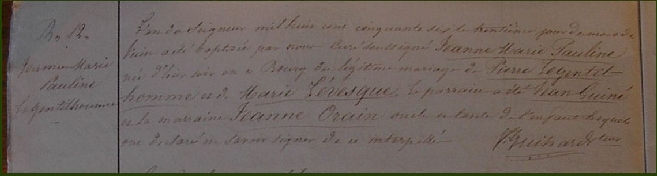 B. R.
Jeanne Marie
Pauline
Legentilhomme
L'an du Seigneur mil huit cent cinquante six le trentième jour du mois de
Juin a été baptisée par nous Curé soussigné Jeanne Marie Pauline
née d'hier soir en ce Bourg du légitime mariage de Pierre Legentil-
homme et de Marie Lévesque. Le parrain a été Jean Guiné
et la marraine Jeanne Orain oncle et tante de l'enfant lesquels
ont déclaré ne savoir signer de ce interpellés